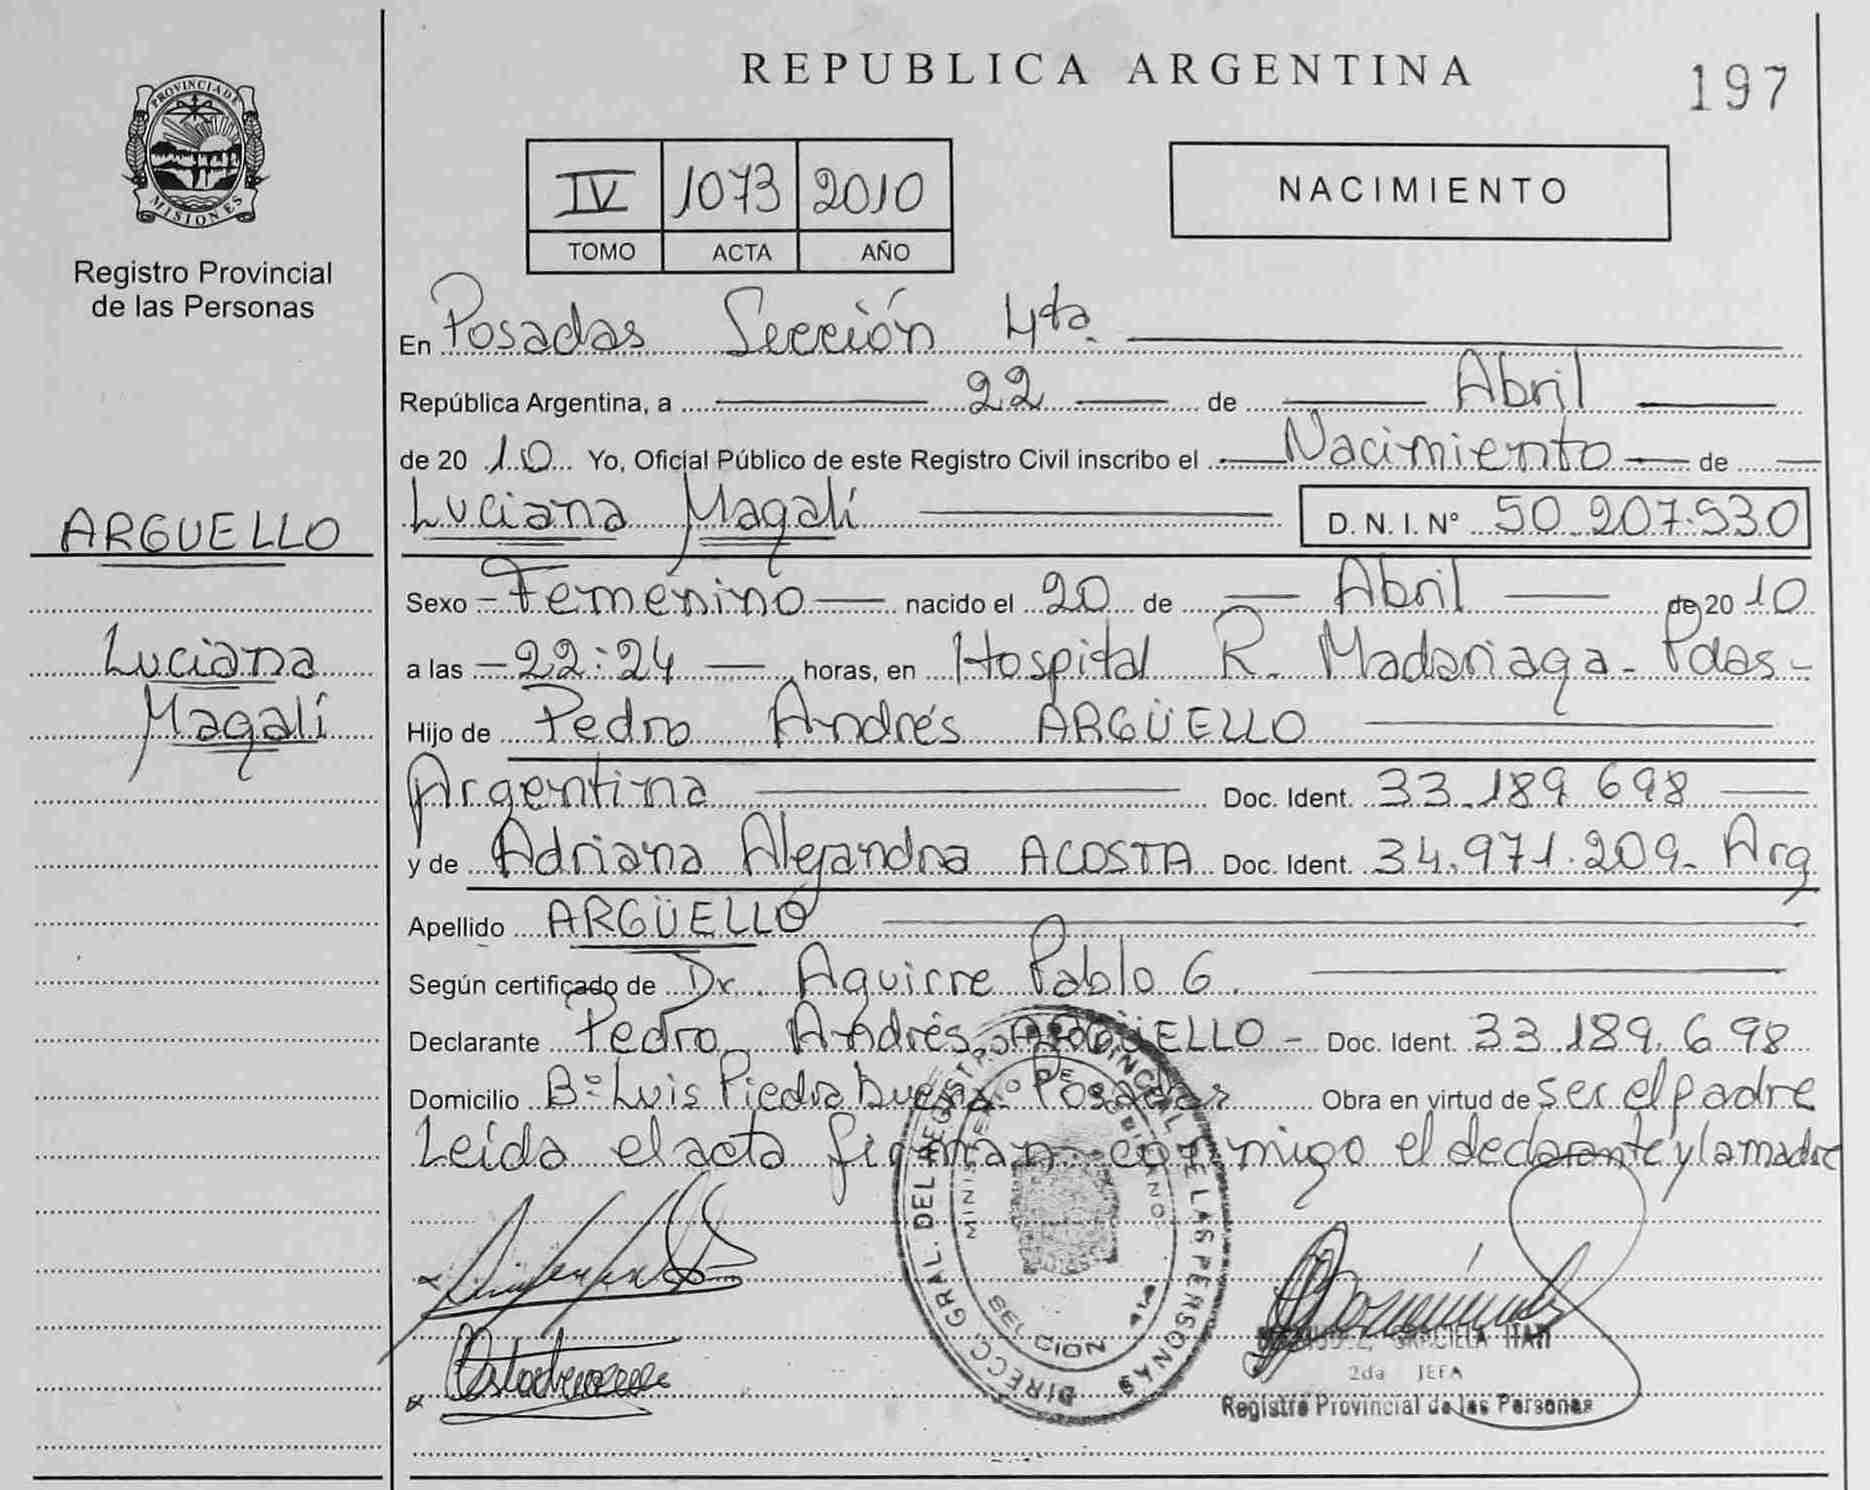 REPUBLICA ARGENTINA
197
PROVINCIA DE MISIONES
Registro Provincial
de las Personas
IV 1073 2010
TOMO ACTA AÑO
NACIMIENTO
En Posadas Sección 4ta.
República Argentina, a 22 de Abril
de 20 10 Yo, Oficial Público de este Registro Civil inscribo el Nacimiento de
ARGUELLO
Luciana Magalí D. N. I. Nº 50.207.530
Sexo Femenino nacido el 20 de Abril de 20 10
Luciana
a las 22:24 horas, en Hospital R. Madariaga - Pdas -
Magalí
Hijo de Pedro Andrés ARGÜELLO
Argentina Doc. Ident. 33.189.698
y de Adriana Alejandra ACOSTA Doc. Ident. 34.971.209 - Arg
Apellido ARGÜELLO
Según certificado de Dr. Aguirre Pablo G.
Declarante Pedro Andrés ARGÜELLO - Doc. Ident. 33.189.698
Domicilio Bº Luis Piedra buena - Posadas Obra en virtud de ser el padre
Leída el acta firman conmigo el declarante y la madre
DIRECC. GRAL. DEL REGISTRO PROVINCIAL DE LAS PERSONAS
MINISTERIO DE GOBIERNO
SECCION 4ta
GRACIELA ITATI
2da JEFA
Registro Provincial de las Personas